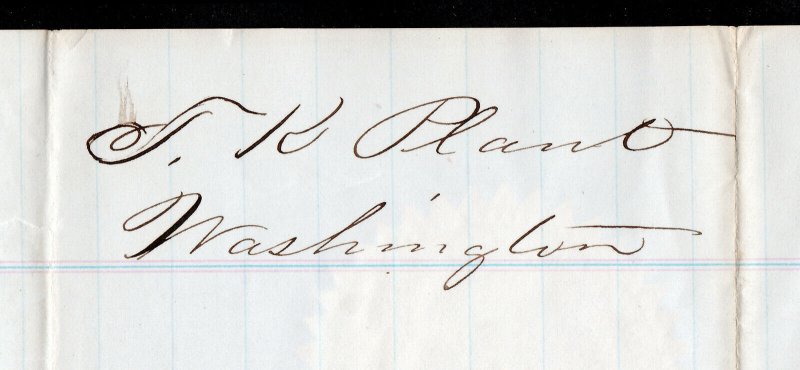 T. K Plant
Washington